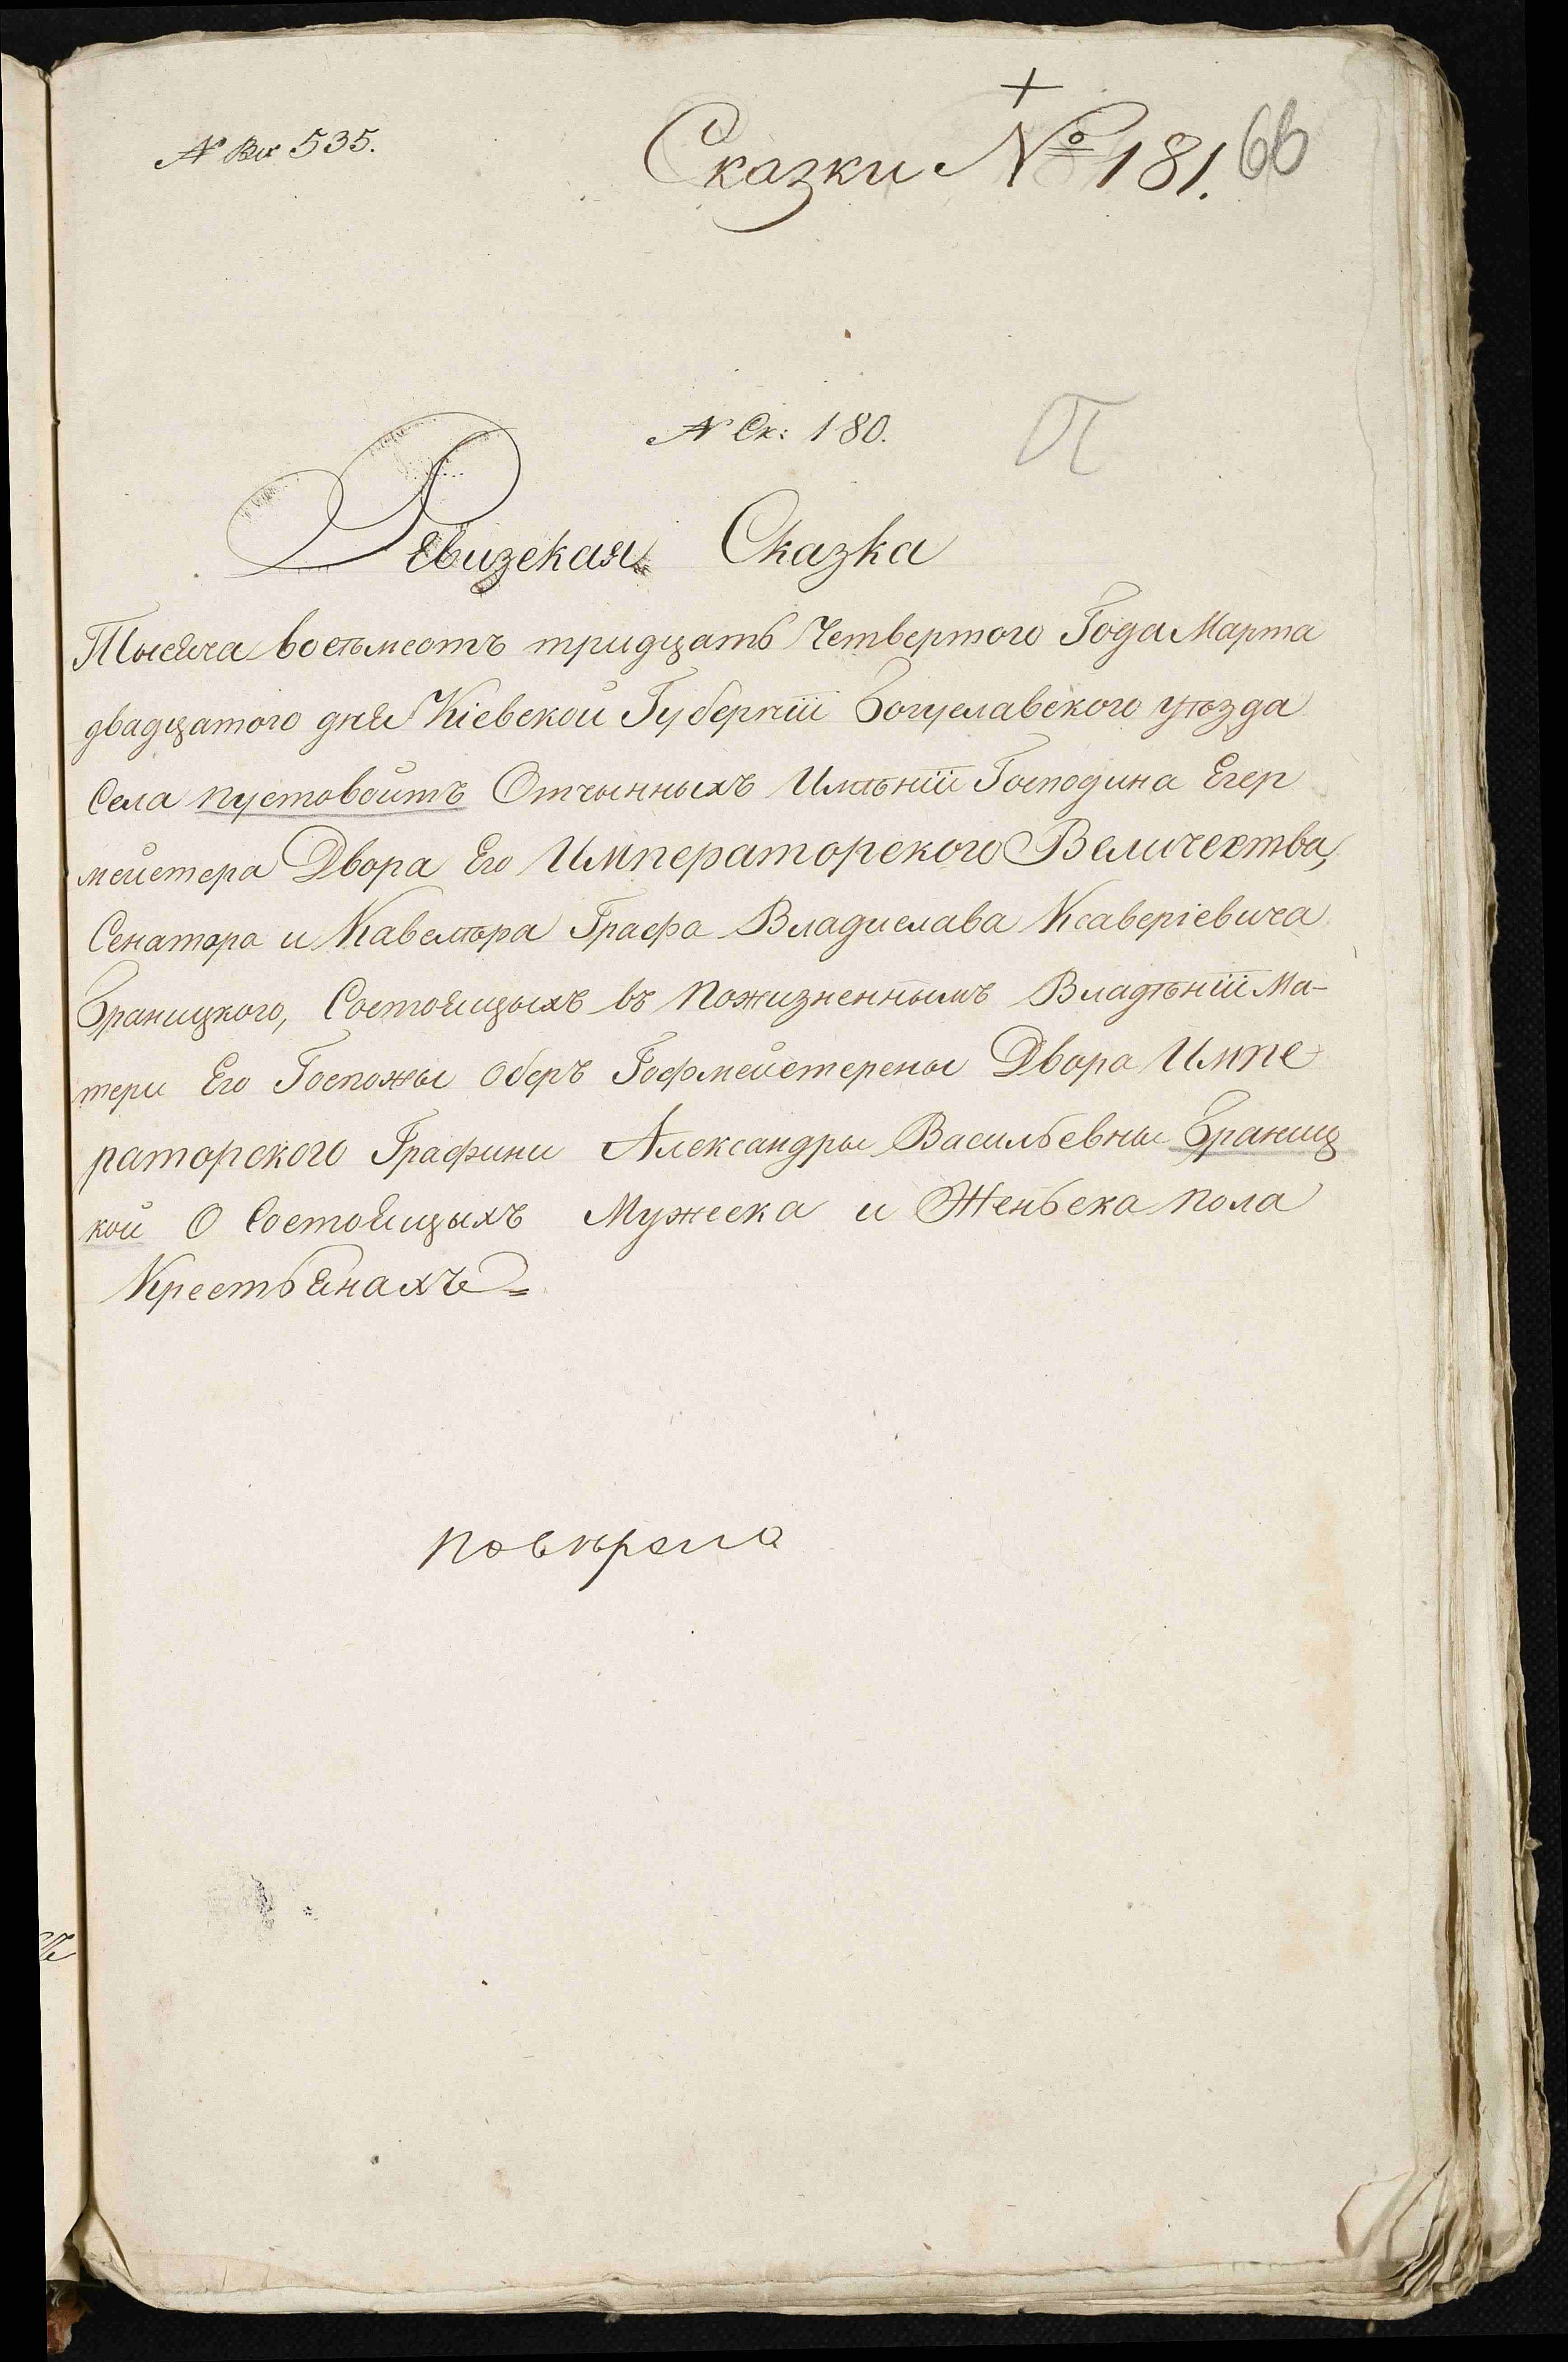 № Вх 535.
Сказки № 181. 66
№ Ск: 180.
Ревизская Сказка
Тысяча восѣмсотъ тридцать Четвертого Года Марта
двадцатого дня Кіевской Губерніи Богуславского уѣзда
Села Пустовойтъ Отчынныхъ Имѣній Господина Егер
мейстера Двора Его Императорского Величества,
Сенатора и Кавелѣра Графа Владислава Ксаверіевича
Браницкого, Состоящыхъ въ Пожизненнымъ Владѣніи Ма-
тери Его Госпожы Оберъ Гофмейстерены Двора Импе
раторского Графини Александры Васильевны Браниц
кой О Состоящыхъ Мужеска и Женьска пола
Крестьянахъ=
повѣрена